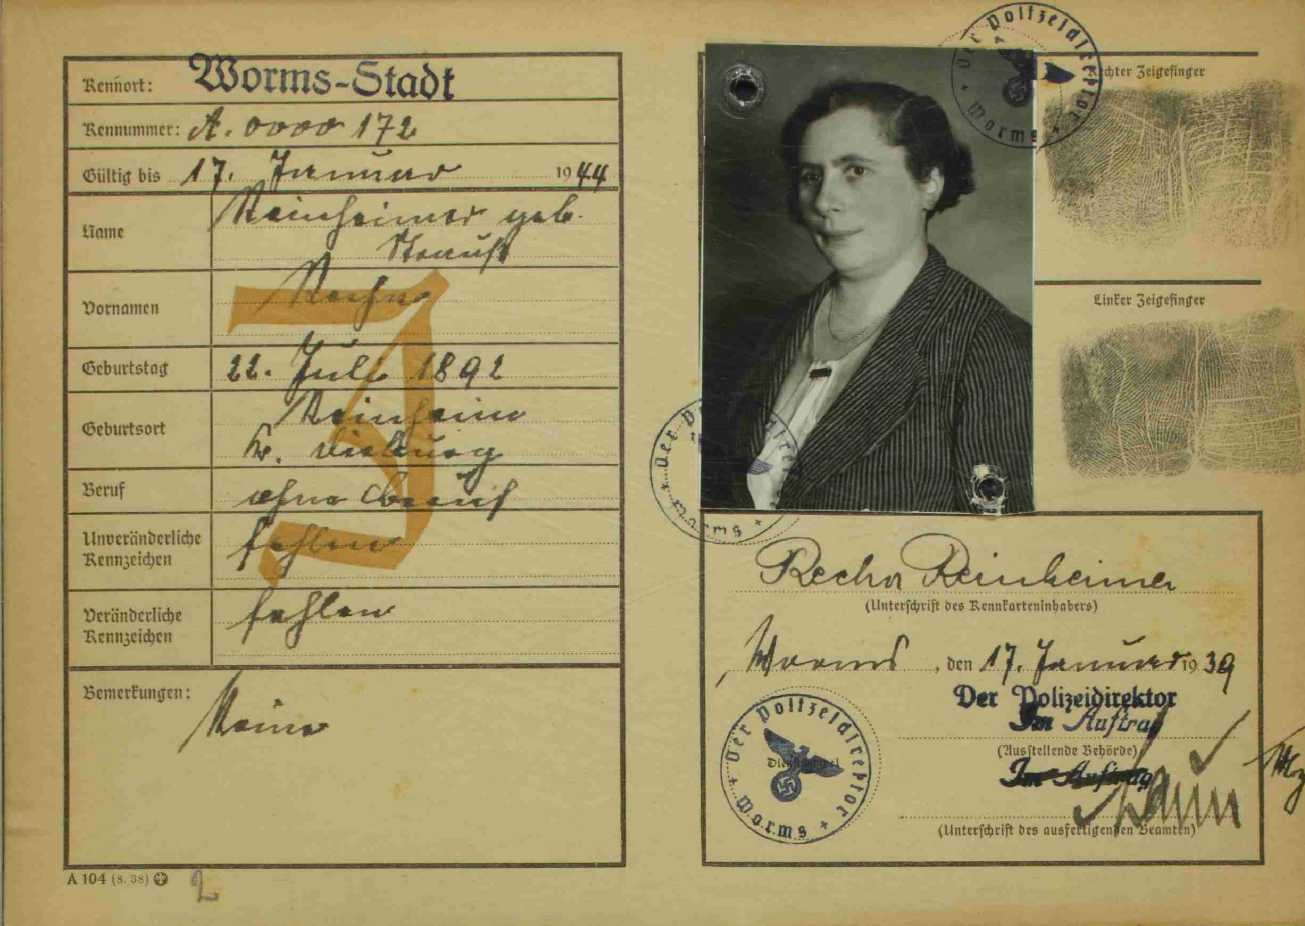 Kennort: Worms-Stadt
Kennummer: A. 0000 172
Gültig bis 17. Januar 1944
Name Reinheimer geb.
Strauß
Vornamen Recha
Geburtstag 22. Juli 1892
Geburtsort Reinheim
Kr. Dieburg
Beruf ohne Beruf
Unveränderliche
Kennzeichen fehlen
Veränderliche
Kennzeichen fehlen
Bemerkungen: Keine
J
A 104 (8. 38)
2
Der Polizeidirektor
Worms
Rechter Zeigefinger
Linker Zeigefinger
Der Polizeidirektor
Worms
Recha Reinheimer
(Unterschrift des Kennkarteninhabers)
Worms, den 17. Januar 1939
Der Polizeidirektor
Im Auftrag
(Ausstellende Behörde)
Im Auftrag
(Unterschrift des ausfertigenden Beamten)
Der Polizeidirektor
Dienstsiegel
Worms